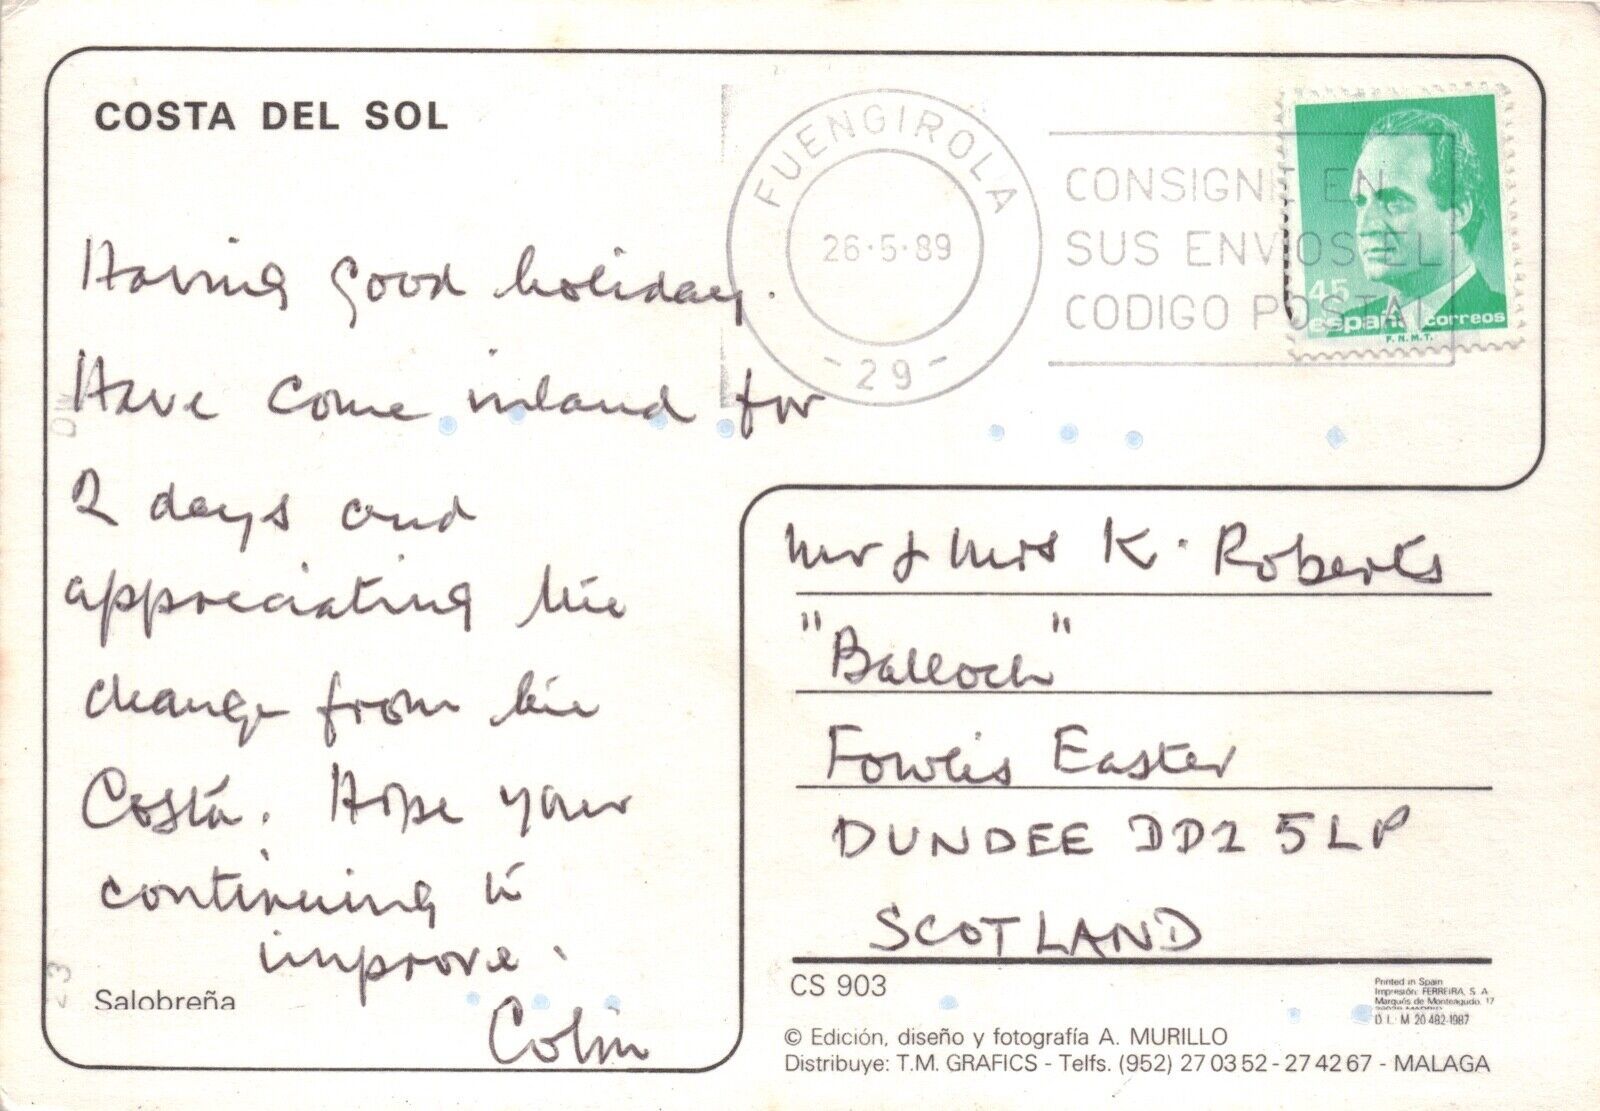 COSTA DEL SOL
FUENGIROLA
26·5·89
-29-
CONSIGNE EN
SUS ENVIOS EL
CODIGO POSTAL
45
españa correos
F.N.M.T.
Having good holiday.
Have come inland for
2 days and
appreciating the
change from the
Costa. Hope your
continuing to
improve.
Colin
Salobreña
Mr & Mrs K. Roberts
"Balloch"
Fowlis Easter
DUNDEE DD2 5LP
SCOTLAND
CS 903
Printed in Spain
Impresión: FERREIRA, S. A.
Marqués de Monteagudo, 17
D. L.: M 20.482-1987
© Edición, diseño y fotografía A. MURILLO
Distribuye: T.M. GRAFICS - Telfs. (952) 27 03 52 - 27 42 67 - MALAGA